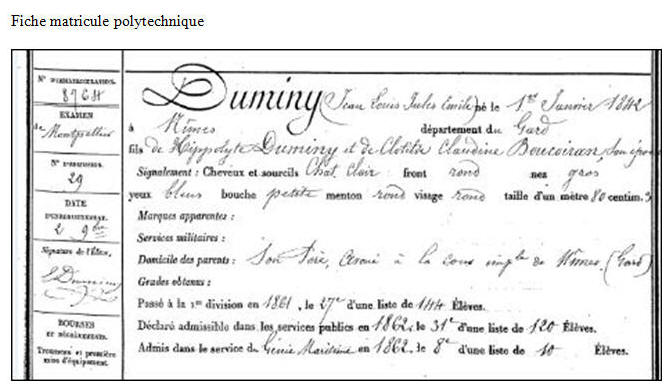 Fiche matricule polytechnique
N° D'IMMATRICULATION.
8764
EXAMEN
de Montpellier
N° D'ADMISSION.
29
DATE
D'ENREGISTREMENT.
2 9bre
Signature de l'Élève,
Duminy
BOURSES
ET RENOUVELLEMENTS.
Trousseau et première
mise d'équipement.
Duminy (Jean Louis Jules Emile) né le 1er Janvier 1842
à Nîmes département du Gard
fils de Hippolyte Duminy et de Clotilde Claudine Boucoiran, son épouse
Signalement : Cheveux et sourcils Chat. Clair front rond nez gros
yeux bleus bouche petite menton rond visage rond taille d'un mètre 80 centim. 3
Marques apparentes :
Services militaires :
Domicile des parents : Son Père, avoué à la cour imple de Nîmes. (Gard)
Grades obtenus :
Passé à la 1re division en 1861, le 27e d'une liste de 144 Élèves.
Déclaré admissible dans les services publics en 1862, le 31e d'une liste de 120 Élèves.
Admis dans le service du Génie Maritime en 1862, le 8e d'une liste de 10 Élèves.